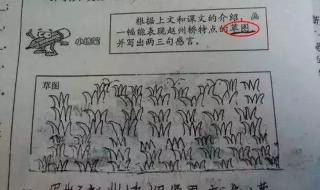 根据上文和课文的介绍，画
一幅能表现赵州桥特点的草图，
并写出两三句感言。
小练笔
草图